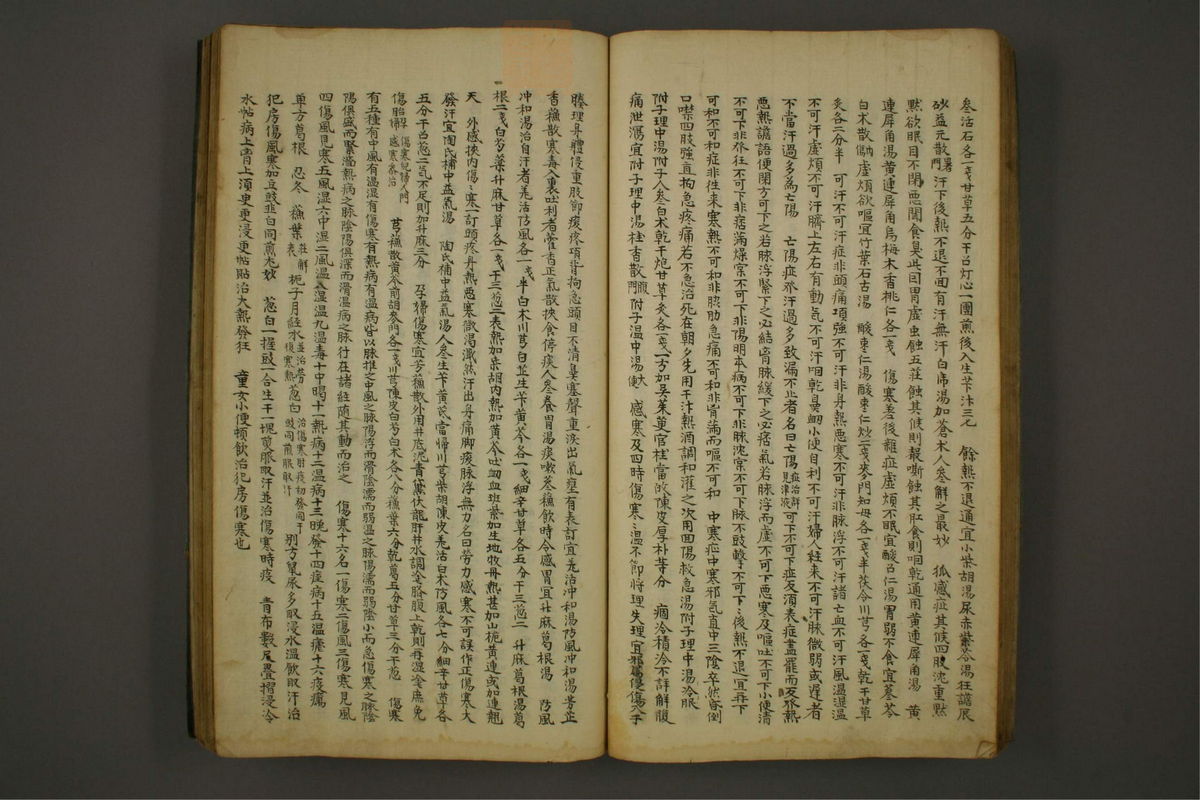 參活石各一戔甘草五分干召灯心一團煎後入生苄汁三元 餘熱不退通宜小柴胡湯尿赤柴苓湯狂譫辰
砂益元散暑門汗下後熱不退不囬有汗無汗白席湯加蒼朮人參解之最妙 狐惑症其候四肢沈重默
默欲眠目不閉悪聞食臭此囙胃虛虫蝕五莊蝕其候則聲嘶蝕其肛食則咽乾通用黃連犀角湯 黃
連犀角湯黃連犀角烏梅木香桃仁各一戔 傷寒差後離症虛煩不眠宜酸召仁湯胃弱不食宜蔘苓
白朮散 虛煩欲嘔宜竹葉石古湯 酸棗仁湯酸棗仁炒二戔麥門知母各一戔半茯令川芎各一戔乾干甘草
灸各二分半 可汗不可汗症非頭痛項強不可汗非身熱悪寒不可汗非脉浮不可汗諸亡血不可汗風温湿温
不可汗虛煩不可汗臍上左右有動気不可汗咽乾鼻衄小便自利不可汗婦人経来不可汗脉微弱或遲者
不當汗過多為亡陽 亡陽症發汗過多致漏不止者名曰亡陽 可下不可下症反須表症盡罷而反發熱
悪熱譫語便閉方可下之若脉浮緊下之必結胷脉緩下之必痞氣若脉浮而虛不可下悪寒及嘔吐不可下小便清
不可下非發狂不可下非痞滿燥宲不可下非陽明本病不可下非脉沈宲不可下脉不鼓擊不可下下後熱不退宜再下
可和不可和症非徃来寒熱不可和非脇肋急痛不可和非胷滿而嘔不可和 中寒症中寒邪气直中三陰卒然昏倒
口噤四肢強直拘急疼痛若不急治死在朝夕先用干汁熱酒調和灌之次用囬陽救急湯附子理中湯冷脹
附子理中湯附子人參白朮乾干炮甘草灸各一戔一方加吳茱萸官桂當故陳皮厚朴等分 痼冷積冷不評解腹
痛泄瀉宜附子理中湯桂香散腹門附子温中湯大便 感寒及四時傷寒寒温不節將理失宜
腠理身軆侵重肢節痠疼項背拘急頭目不清鼻塞聲重涙出氣壅有表訂宜羌活冲和湯防風冲和湯芳芷
香蘓散寒毒入裏吐利者藿香正氣散挾食停痰人參養胃湯痰嗽蔘蘓飲時令感冒宜升麻葛根湯 防風
冲和湯治自汗者羌活防風各一戔半白朮川芎白芷生苄黃芩各一戔細辛甘草各五分干三葱一 升麻葛根湯葛
根二戔白芍藥升麻甘草各一戔干三葱二表熱加柴胡內熱加黃芩吐衄血班紫加生地牧丹熱甚加山梔黃連或加連翹
天 外感挾內傷傷寒訂頭疼身熱悪寒微渴濈然汗出身痛脚痠脉浮無力名曰勞力感寒不可誤作正傷寒大
發汗宜陶氏補中益氣湯 陶氏補中益氣湯人參生苄黃芪當帰川芎柴胡陳皮羌活白朮防風各七分細辛甘草各
五分干召葱二元气不足則加升麻三分 孕婦傷寒宜芎蘓散外用井底泥青黛伏龍肝井水調塗臍腹上乾則再湿塗庶免
傷胎 傷寒見婦人門感寒各治 芎蘓散黃令前胡麥門各一戔川芎陳皮白芍白朮各八分蘓葉六分乾葛五分甘草三分干葱 傷寒
有五種有中風有温湿有傷寒有熱病有温病皆以脉推之中風之脉陽浮而滑陰濡而弱湿温之脉陽濡而弱陰小而急傷寒之脉陰
陽俱盛而緊濇熱病之脉陰陽俱浮而滑温病之脉行在諸経随其動而治之 傷寒十六名一傷寒二傷風三傷寒見風
四傷風見寒五風湿六中湿七風温八湿温九温毒十中暍十一熱病十二温病十三晚發十四痓病十五温瘧十六疫癘
單方葛根 忍冬 蘓葉 解表 梔子月経水並治勞復 傷寒熱 葱白 治傷寒時疫初發同汗豉同煎服取汗 別方鼠尿多取浸水温飲取汗治
犯房傷風寒加豆豉韭白同煎尤妙 葱白一握豉一合生干一塊煎服取汗並治傷寒時疫 青布數尺疊摺浸冷
水帖病上胃上湏更更浸更帖貼治大熱發狂 童女小便頓飲治犯房傷寒也